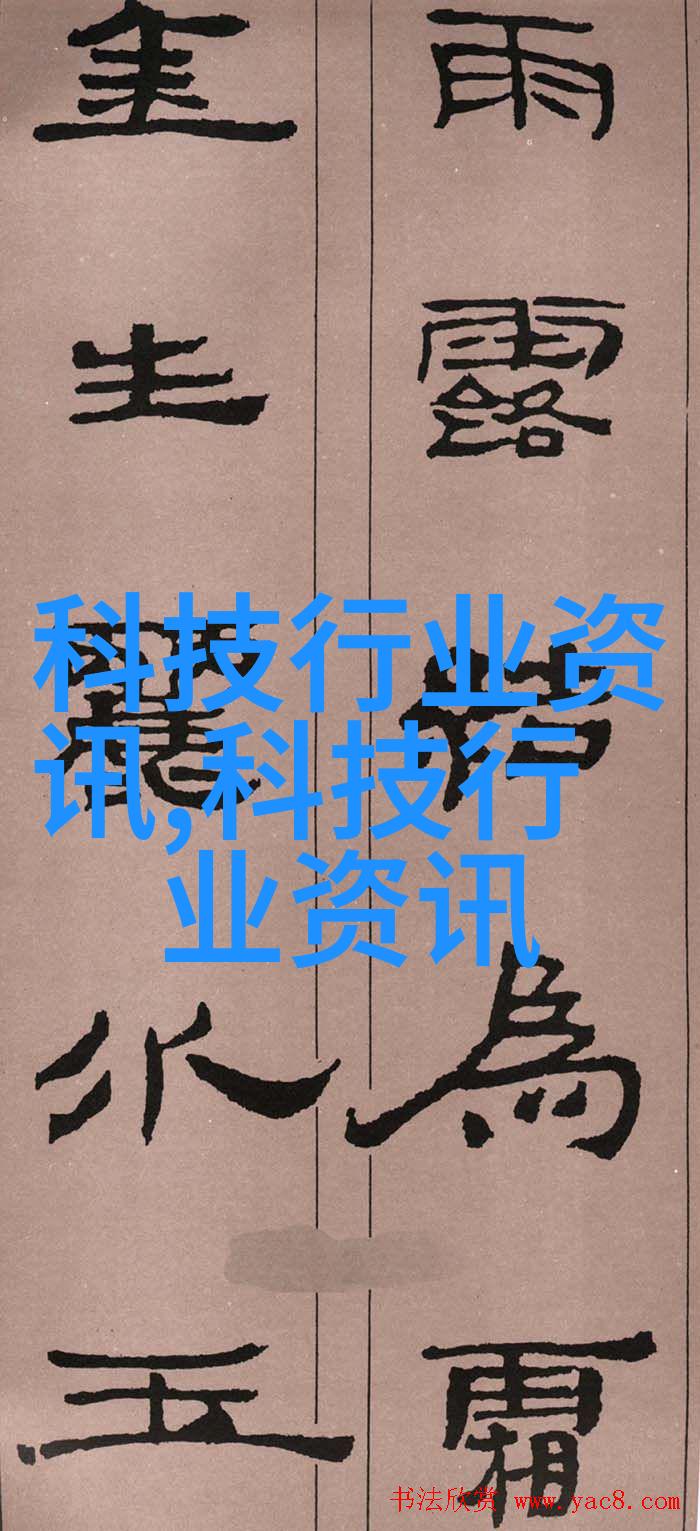 雨露結為霜
金生麗水玉
科技行业资
讯,科技行
业资讯
书法欣赏 www.yac8.com